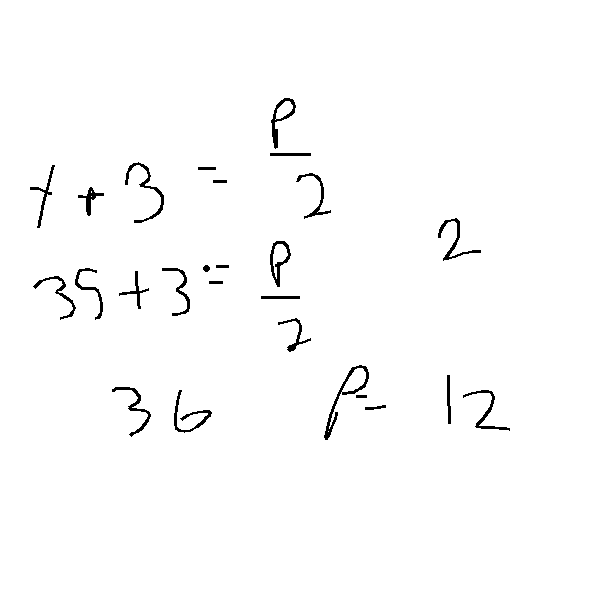 y + 3 = P/2
35 + 3 = P/2
2
36 P = 12